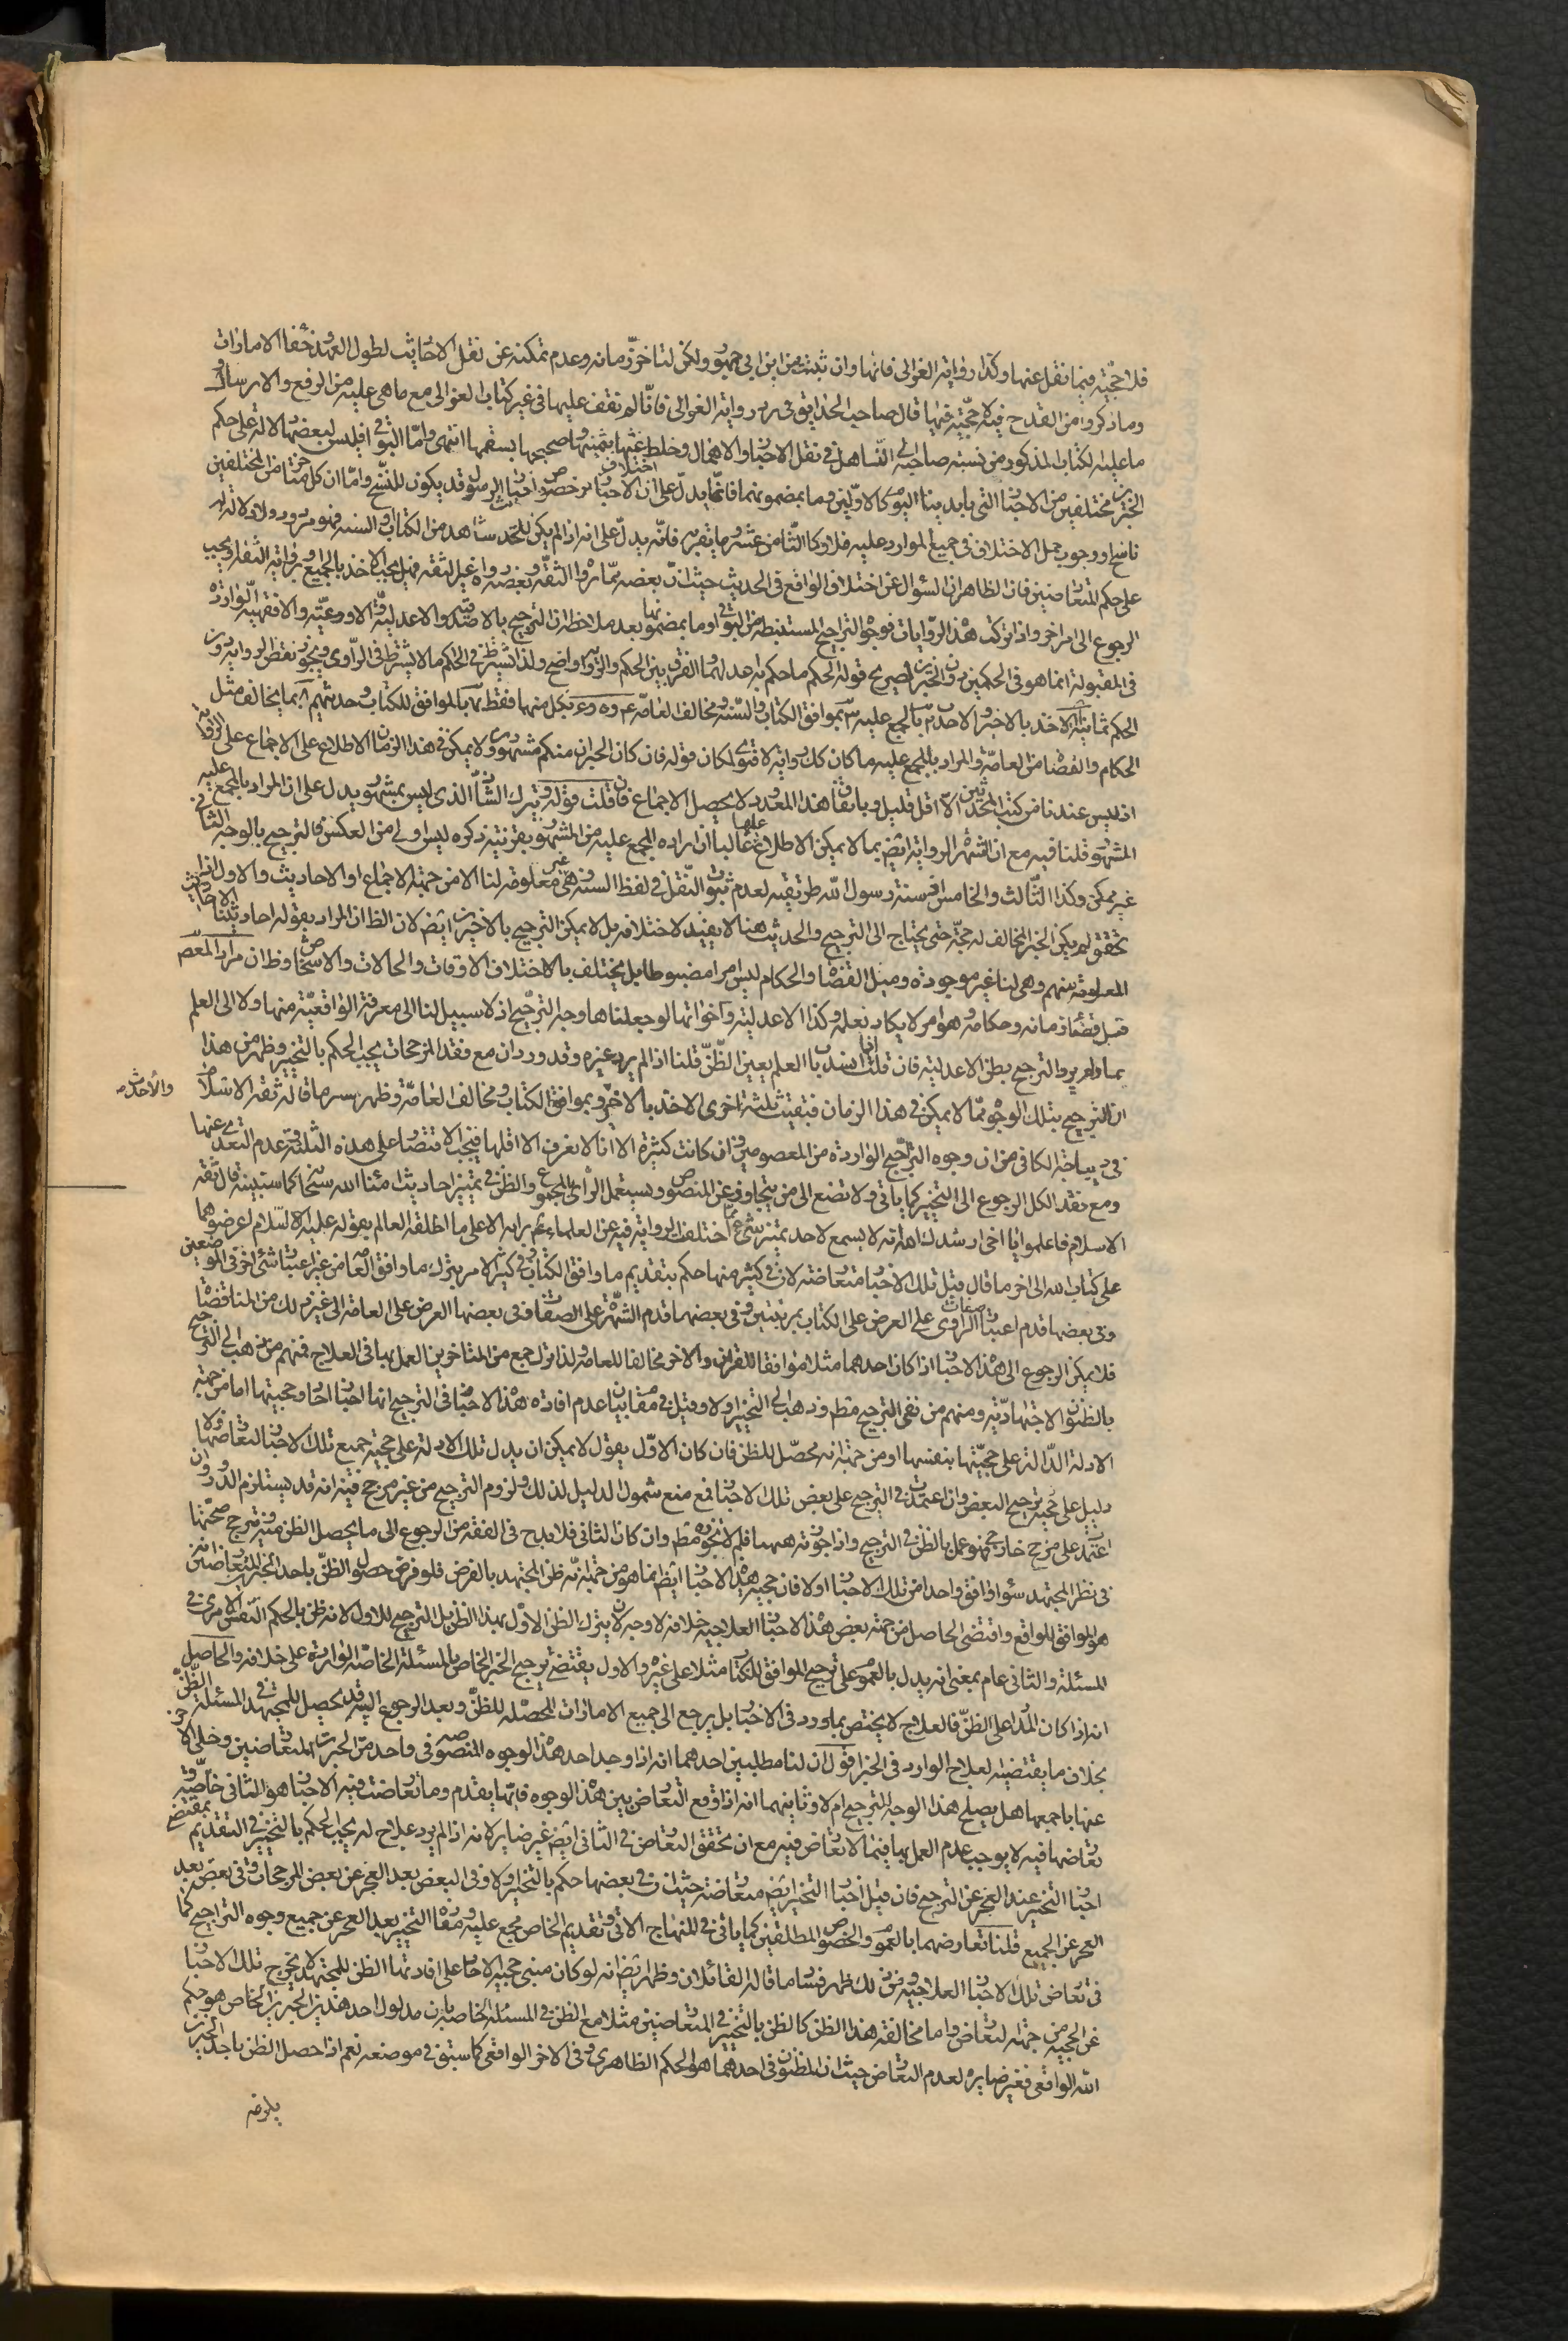 فلا حجّيّة فيما نقل عنها وكذا رواية الغوالى فانها وان ثبتت من ابن ابى جمهور ولكن لتاخّر زمانه وعدم تمكنه عن نقل الاحاديث لطول العهد وخفاء الامارات
وما ذكروا من القدح فيه لا حجّيّة فيها قال صاحب الحدايق فى رد رواية الغوالى فانّا لم نقف عليها فى غير كتاب الغوالى مع ما هى عليه من الرفع والارسال و
ما عليه الكتاب المذكور من نسبة صاحبه الى التساهل فى نقل الاخبار والاهمال وخلط غثّها بثمينها وصحيحها بسقيمها انتهى وامّا البواقى فليس لبعضها دلالة على حكم
الخبرين مختلفين من الاخبار التى بايدينا اليوم كالاوّلين وما بمضمونهما فانما يدلّ على ان الاخبار خصوص اخبار الرسول قد يكون للنسخ وامّا ان كل من المختلفين
ناسخ او وجوب حمل الاختلاف فى جميع الموارد عليه فلا وكالثّامن عشر وما يقربه فانّه يدلّ على انه اذا لم يكن لاحد شاهد من الكتاب او السنة فهو مردود ولا دلالة له
على حكم المتعارضين فان الظاهر ان السؤال عن اختلاف الواقع فى الحديث حيث انّ بعضه ممّا رواه الثقة وبعضه رواه غير الثقة فهل يجب الاخذ بالجميع او برواية الثقة او يجب
الرجوع الى امر اخر واذا تركت هذه الرّوايات فوجوه التراجيح المستنبطة من البواقى او ما بمضمونها بعد ملاحظة ان الترجيح بالاصدقية والاعدلية والاورعيّة والافقهية الواردة
فى المقبولة انما هو فى الحكمين دون الخبرين لصريح قوله الحكم ما حكم به اعدلهما والفرق بين الحكم والرواية واضح ولذا يشترط فى الحاكم ما لا يشترط فى الرّاوى ويجوز نقض الرواية دون
الحكم ثمانية الاخذ بالاخير والاحدث بالمجمع عليه بموافق الكتاب والسّنة ومخالف العامّة وبكل منهما فقط بالموافق للكتاب وحديثهم بما يخالف مثل
الحكام والقضاة من العامّة والمراد بالمجمع عليه ما كان كك رواية لا فتوى لمكان قوله فان كان الخبران منكم مشهورين ولا يمكن فى هذا الزمان الاطلاع على الاجماع على الرواية
اذ ليس عندنا من كتب المحدثين الّا اقل قليل وباتفاق هذا المعدود لا يحصل الاجماع فان قلت قوله ويترك الشّاذ الذى ليس بمشهور يدل على ان المراد بالمجمع عليه
المشهور قلنا فيه مع ان اشتهار الرواية ايضا بما لا يمكن الاطلاع عليها غالبا ان ارادة المجمع عليه من المشهور بقرينة ذكره ليس اولى من العكس فالترجيح بالوجه الثانى
غير ممكن وكذا الثّالث والخامس اذ سنة رسول اللّه طريقته لعدم ثبوت النّقل فى لفظ السنة وهى غير معلومة لنا الا من جهة الاجماع او الاحاديث والاول اذا
تحقق لم يكن الخبر المخالف له حجّة حتى يحتاج الى الترجيح والحديث هنا لا يفيد لاختلافه بل لا يمكن الترجيح بالاخير ايضا لان الظ ان المراد بقوله احاديثنا الاحاديث
المعلومة منهم وهى لنا غير موجودة وميل القضاة والحكام ليس امرا مضبوطا بل يختلف باختلاف الاوقات والحالات والاشخاص وظ ان مراد المعصوم
قبل قضاة زمانه وحكامه وهو امر لا يكاد نعلمه وكذا الاعدلية واخواتها لو جعلناها وجه الترجيح اذ لا سبيل لنا الى معرفة الواقعيّة منها ولا الى العلم
بها ولم يرد الترجيح بظن الاعدلية فان قلت اذا انسد باب العلم يعيّن الظّنّ قلنا اذا لم يرد غيره وقد ورد ان مع فقد المرجحات يجب الحكم بالتخيير وظهر من هذا
ان الترجيح بتلك الوجوه ممّا لا يمكن فى هذا الزمان فبقيت ثلثة اخرى الاخذ بالاخير وبموافق الكتاب ومخالف العامّة وظهر سر ما قاله ثقة الاسلام
والاحدث صح
فى ديباجة الكافى من ان وجوه التراجيح الواردة من المعصومين وان كانت كثيرة الا انا لا نعرف الا اقلها فيجب الاقتصار على هذه الثلثة وعدم التعدى عنها
ومع فقد الكل الرجوع الى التخيير كما ياتى ولا تضع الى من يتجاوز عن المنصوص ويستعمل الرأى المجموع والظنّ فى تمييز احاديث امنآء اللّه سبحانه كما ستبينه قال ثقة
الاسلام فاعلموا يا اخى ارشدك اللّه انه لا يسمع لاحد تميز شىء ممّا اختلفت الرواية فيه عن العلماء برايه الا على ما اطلقه العالم بقوله عليه السّلام اعرضوهما
على كتاب اللّه الى اخر ما قال فان قيل تلك الاخبار متعارضة لان فى كثير منها حكم بتقديم ما وافق الكتاب وفى كثير الامر بترك ما وافق العامّة من غير اعتبار شئ اخر فى الموضعين
وفى بعضها قدم اعتبار صفات الرّاوى على العرض على الكتاب بمرتبتين وفى بعضها قدم الشّهرة على الصفات وفى بعضها العرض على العامة الى غير ذلك من المناقضات
فلا يمكن الرجوع الى هذه الاخبار اذا كان احدهما مثلا موافقا للقران والاخر مخالفا للعامة ولذا ترك جمع من المتاخرين العمل بها فى العلاج فمنهم من ذهب الى الترجيح
بالظنون الاجتهاديّة ومنهم من نفى الترجيح مط وذهب الى التخيير اولا وقيل فى مقام بيان عدم افادة هذه الاخبار فى الترجيح انها اخبار احاد وحجيتها اما من جهة
الادلة الدّالة على حجّيتها بنفسها او من جهة انه محصّل للظن فان كان الاوّل يقول لا يمكن ان يدل تلك الادلة على حجية جميع تلك الاخبار لتعارضها ولا
دليل على حجية ترجيح البعض وان اعتمدت فى الترجيح على بعض تلك الاخبار فمع منع شمول الدليل لذلك ولزوم الترجيح من غير مرجح فيه انه قد يستلزم الدّور وان
اعتمد على مرجح خارجى فهو عمل بالظن فى الترجيح واذا جوزته ههنا فلم لا تجوزه مط وان كان الثانى فلا بد ح فى الفقه من الرجوع الى ما يحصل الظن منه ويترجح صحّتها
فى نظر المجتهد سواء وافق واحدا من تلك الاخبار اولا فان حجية هذه الاخبار ايضا انما هو من جهة انّه ظن المجتهد بالفرض فلو فرض حصول الظنّ باحد الخبرين المتعارضين انه
هو الموافق للواقع واقتضى الحاصل من جهة بعض هذه الاخبار العلاجيه خلافه لا وجه لان يترك الظن الاوّل بهذا الظن بل الترجيح للاول لانه ظن بالحكم النفس الامرى فى
المسئلة والثانى عام بمعنى انه يدل بالعموم على ترجيح الموافق للكتاب مثلا على غيره والاول يقتضى ترجيح الخبر الخاص بالمسئلة الخاصة الواردة على خلافه والحاصل
انه اذا كان المدار على الظنّ فالعلاج لا يختص بما ورد فى الاخبار بل يرجع الى جميع الامارات المحصّلة للظنّ وبعد الرجوع اليه قد يحصل للمجتهد فى المسئلة الظّنّ
بخلاف ما يقتضيه العلاج الوارد فى الخبر اقول ان لنا مطلبين احدهما انه اذا وجد احد هذه الوجوه المنصوصة فى واحد من الخبرين المتعارضين وخلى الاخر
عنها باجمعها هل يصلح هذا الوجه للترجيح ام لا وثانيهما انه اذا وقع التعارض بين هذه الوجوه فايّها يقدم وما تعارضت فيه الاخبار هو الثانى خاصّة و
تعارضها فيه لا يوجب عدم العمل بها فيما لا تعارض فيه مع ان تحقق التعارض فى الثانى ايضا غير ضاير لانه اذا لم يرد علاج له يجب الحكم بالتخيير فى التقديم بمقتضى
اخبار التخيير عند العجز عن الترجيح فان قيل اخبار التخيير ايضا متعارضة حيث ان فى بعضها حكم بالتخيير اولا وفى البعض بعد العجز عن بعض المرجحات وفى بعض بعد
العجز عن الجميع قلنا تعارضهما بالعموم والخصوص المطلقين كما ياتى فى المنهاج الاتى وتقديم الخاص مجمع عليه ومفاد التخيير بعد العجز عن جميع وجوه التراجيح كما
فى تعارض تلك الاخبار العلاجيه ومن ذلك ظهر فساد ما قاله القائلان وظهر ايضا انه لو كان مبنى حجية الاحاد على افادتها الظن للمجتهد لا يخرج تلك الاخبار
عن الحجيه من جهة التعارض واما مخالفة هذا الظن كالظن بالتخيير فى المتعارضين مثلا مع الظن فى المسئلة الخاصة بان مدلول احد هذين الخبرين الخاص هو حكم
اللّه الواقعى فغير ضاير لعدم التعارض حيث ان المظنون فى احدهما هو الحكم الظاهرى وفى الاخر الواقعى كما سبق فى موضعه نعم اذا حصل الظن باحد الخبرين